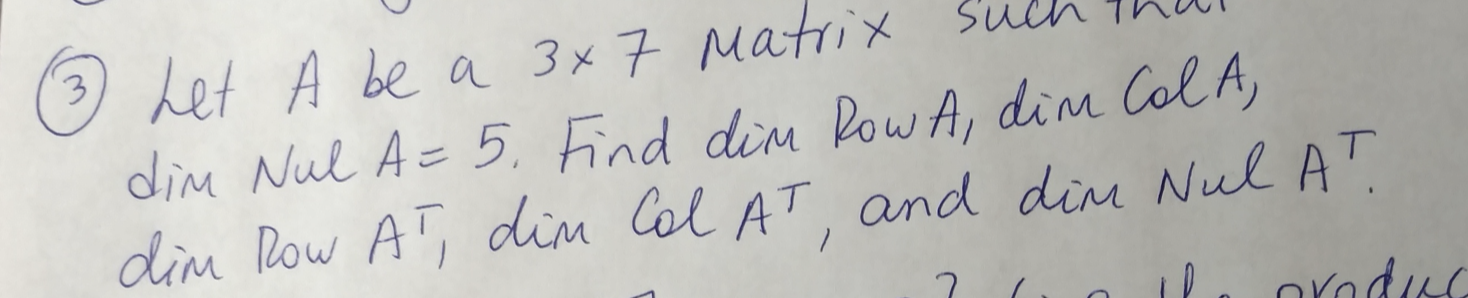 ③ Let A be a 3 × 7 Matrix such that
dim Nul A = 5. Find dim Row A, dim Col A,
dim Row Aᵀ, dim Col Aᵀ, and dim Nul Aᵀ.